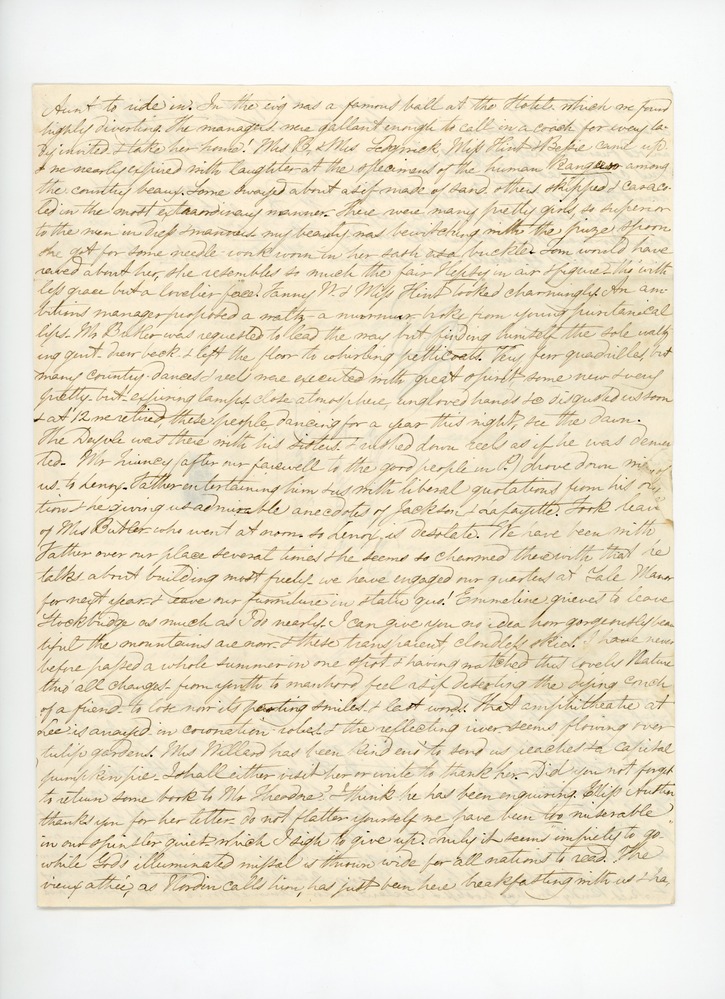 Aunt to ride in. In the evig was a famous ball at the Hotel which we found
highly diverting. The managers were gallant enough to call in a coach for every la-
dy invited & take her home! Mrs B, & Mrs Sedgwick Miss Flint & Bessie came up
& we nearly expired with laughter at the specimens of the human Kangaroo among
the country beaux. Some swayed about as if made of sand, others skipped & caraco-
led in the most extraordinary manner. There were many pretty girls, so superior
to the men in dress & manners my beauty was bewitching with the prize spoon
she got for some needle work worn in her sash as a buckle. Tom would have
raved about her, she resembles so much the fair Hepsy in air & figure tho' with
less grace but a lovelier face. Fanny W. & Miss Flint looked charmingly. An am-
bitious manager proposed a waltz - a murmur broke from young puritanical
lips. Mr Butler was requested to lead the way but finding himself the sole waltz-
ing gent. drew back & left the floor to whirling petticoats. Very few quadrilles but
many country dances & reels were executed with great spirit some new & very
pretty but expiring lamps, close atmosphere, ungloved hands &c disgusted us soon
& at 12 we retired, these people, dancing for a year this night, see the dawn.
The Deputé was there with his sisters & rushed down reels as if he was demen
ted. Mr Quincy (after our farewell to the good people in P.) drove down with
us to Lenox. Father entertaining him & us with liberal quotations from his ora
tion & he giving us admirable anecdotes of Jackson & Lafayette. Took leave
of Mrs Butler who went at noon. so Lenox is desolate. We have been with
Father over our place several times & he seems so charmed therewith that he
talks about building most freely. we have engaged our quarters at Tale Manor
for next year & leave our furniture in statu quo! Emmeline grieves to leave
Stockbridge as much as I do nearly. I can give you no idea how gorgeously beau
tiful the mountains are now. & these transparent, cloudless skies! I have never
before passed a whole summer in one spot & having watched that lovely Nature
thro' all changes from youth to manhood feel as if deserting the dying couch
of a friend to lose now its parting smiles & last words. That amphitheatre at
Lee is arrayed in coronation robes & the reflecting river seems flowing over
tulip gardens. Mrs Willard has been kind eno to send us peaches & a capital
pumpkin pie. I shall either visit her or write to thank her. Did you not forget
to return some book to Mr Theodore? I think he has been enquiring. Miss Austin
thanks you for her letter. do not flatter yourself we have been too miserable
in our spinster quiet which I sigh to give up. Truly it seems impiety to go
while God's illuminated missal is thrown wide for all nations to read. The
vieux athée, as Nordin calls him, has just been here breakfasting with us & ha,